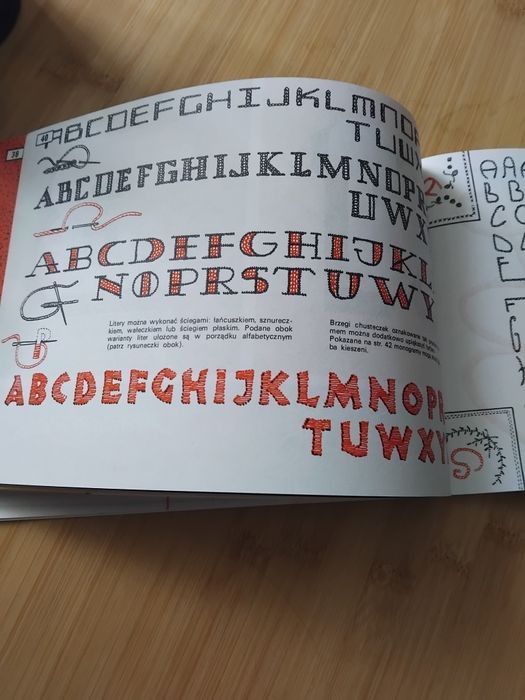 38
40
ABCDEFGHIJKLMNOP
TUWX
ABCDEFGHIJKLMNOPR
UWX
ABCDEFGHIJKL
NOPRSTUWY
Litery można wykonać ściegami: łańcuszkiem, sznurecz-
kiem, wałeczkiem lub ściegiem płaskim. Podane obok
warianty liter ułożone są w porządku alfabetycznym
(patrz rysuneczki obok).
Brzegi chusteczek oznakowane
mem można dodatkowo upiększyć
Pokazane na str. 42 monogramy
ba kieszeni.
ABCDEFGHIJKLMNOPR
TUWXY
2
A A
B B
C
D
E
F
G
S